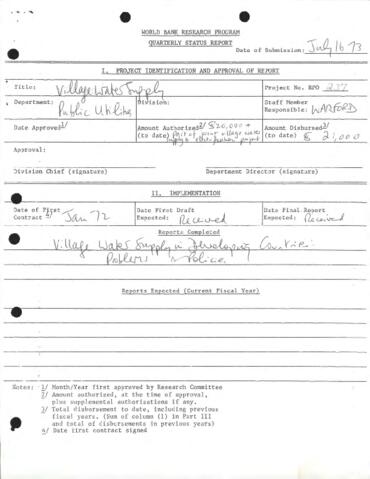 WORLD BANK RESEARCH PROGRAM
QUARTERLY STATUS REPORT
Date of Submission: July 16 73
I. PROJECT IDENTIFICATION AND APPROVAL OF REPORT
Title: Village Water Supply
Project No. RPO 237
Department: Public Utility
Division:
Staff Member Responsible: WARFORD
Date Approved 1/
Amount Authorized 2/ $20,000
(to date) part of joint village water supply & electrification project
Amount Disbursed 3/
(to date) $ 21,000
Approval:
Division Chief (signature) Department Director (signature)
II. IMPLEMENTATION
Date of First Contract 4/ Jan 72
Date First Draft Expected: Received
Date Final Report Expected: Received
Reports Completed
Village Water Supply in Developing Countries
Problems Policies
Reports Expected (Current Fiscal Year)
Notes: 1/ Month/Year first approved by Research Committee
2/ Amount authorized, at the time of approval,
plus supplemental authorizations if any.
3/ Total disbursement to date, including previous
fiscal years. (Sum of column (1) in Part III
and total of disbursements in previous years)
4/ Date first contract signed